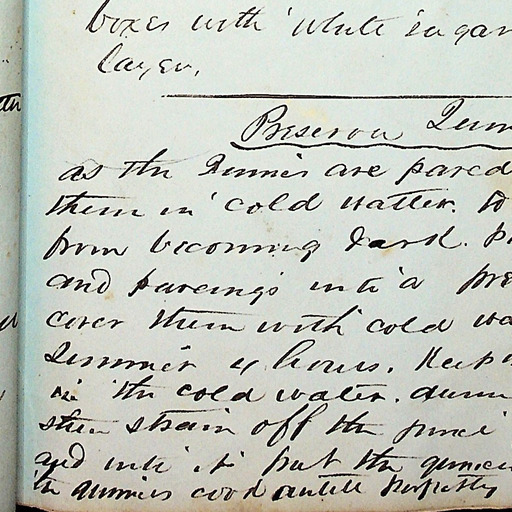 boxes with white sugar
layer.
Preserved Quin
as the Quinces are pared
them in cold watter. to
from becoming dark. p
and pareings into a pre
cover them with cold wa
Simmer 4 hours. Keep
in the cold water. durin
then strain off the juice
and into it put the quinces
the quinces cook untill perfectly